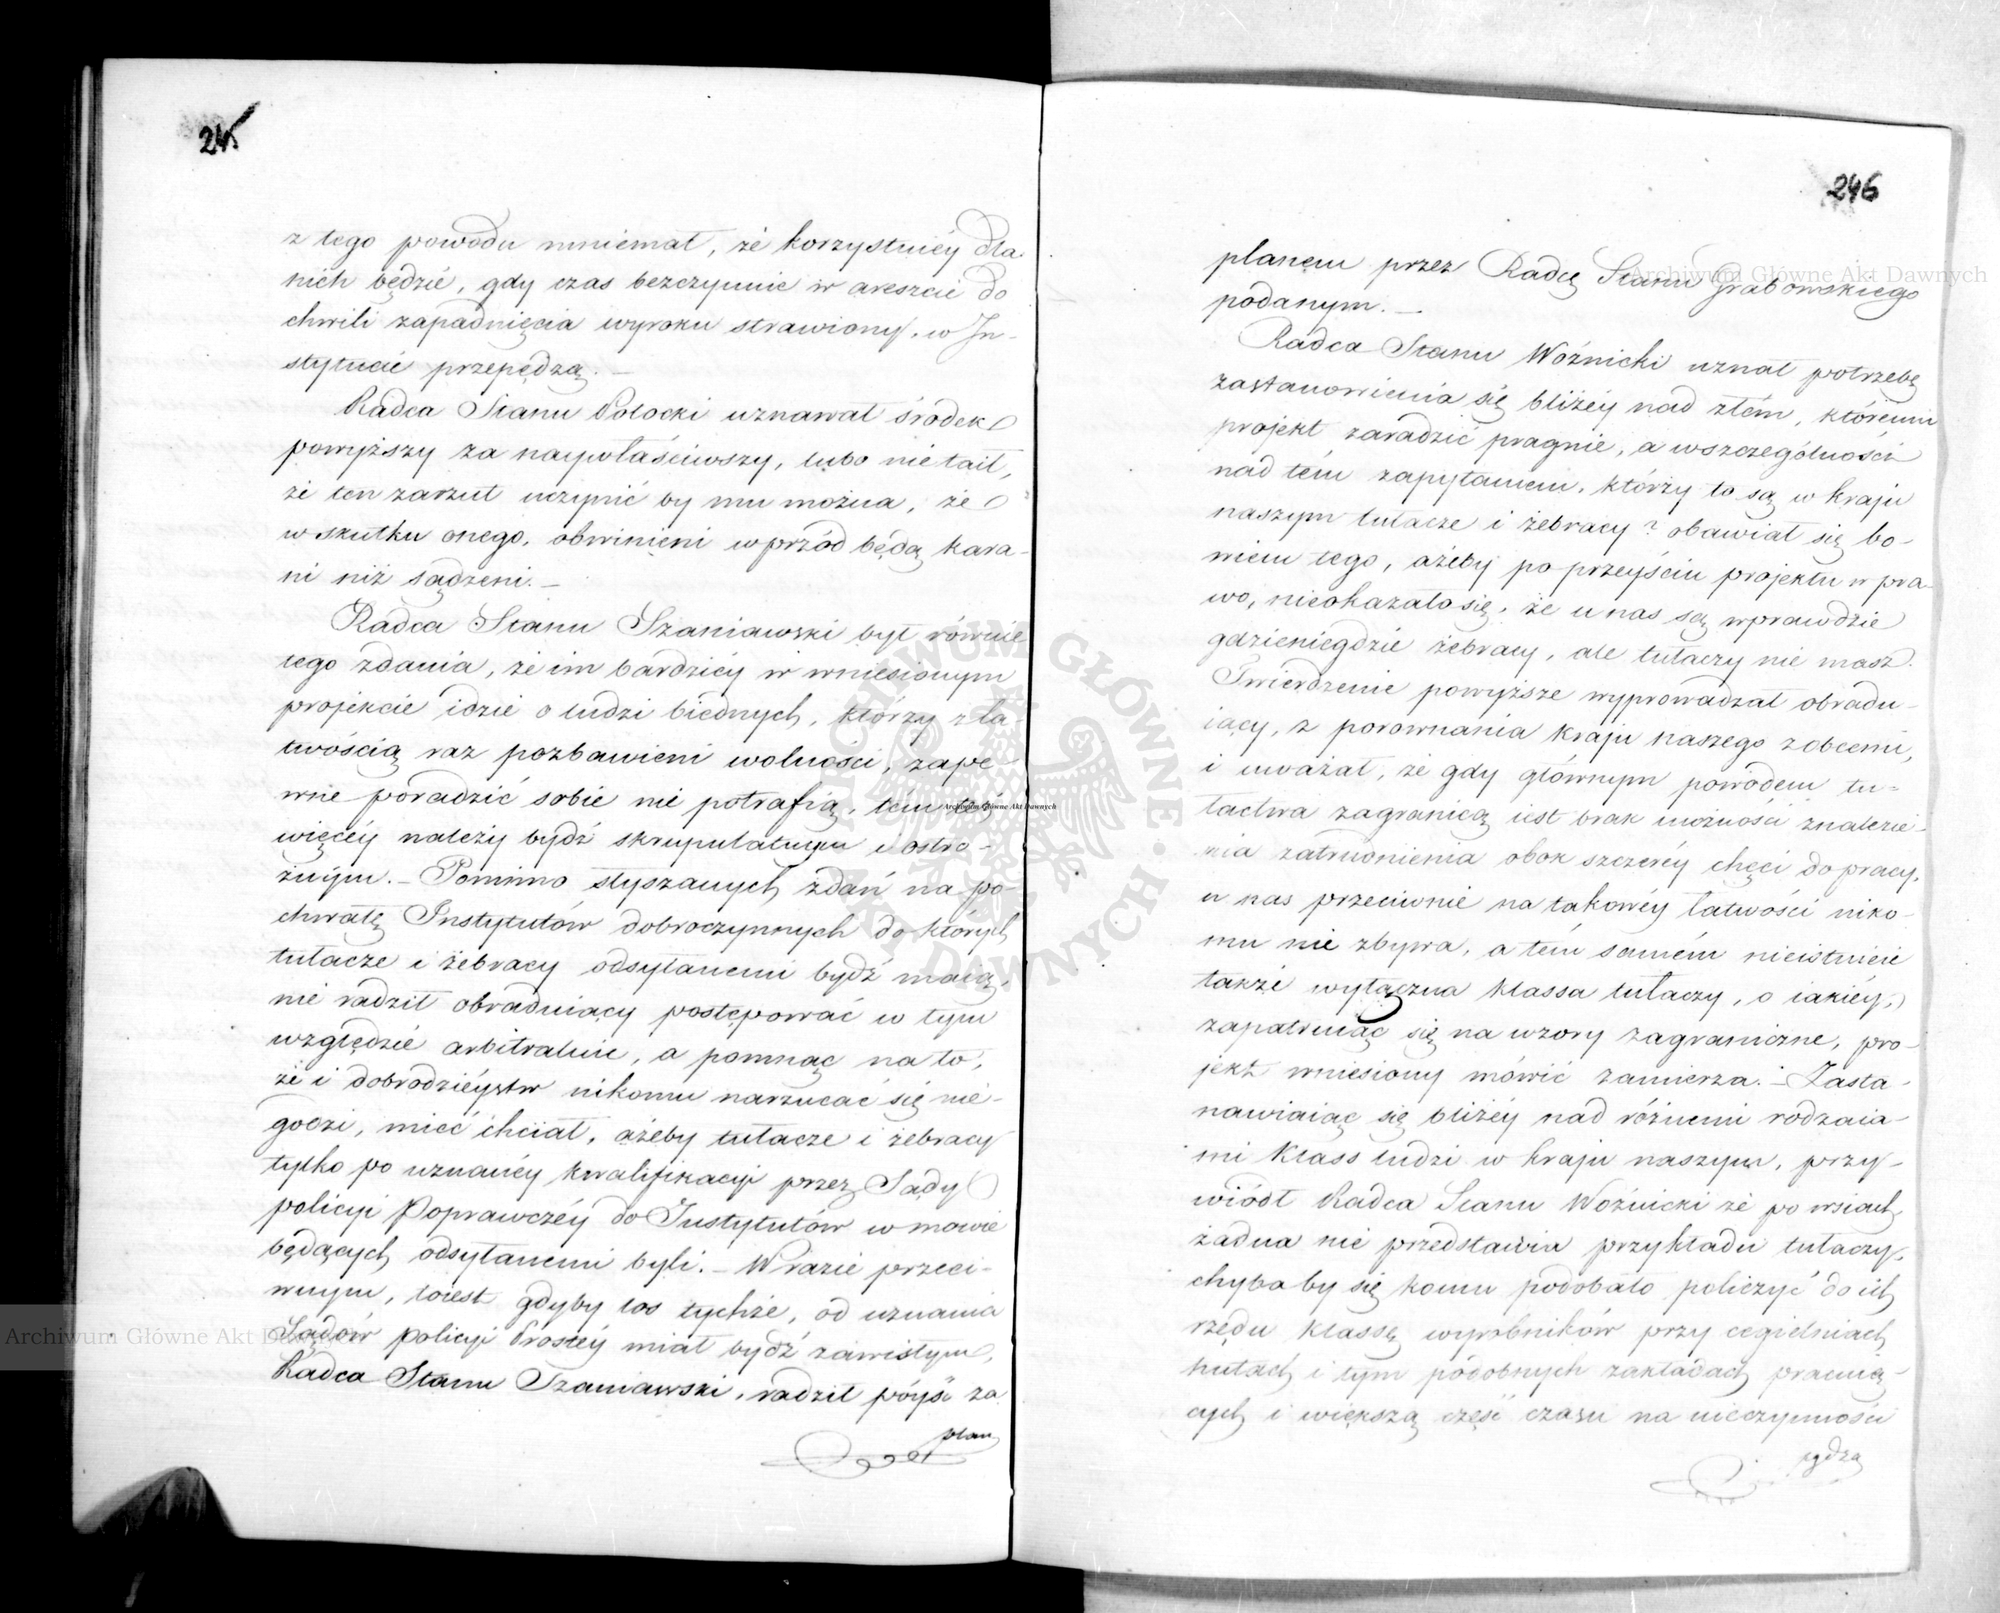 245
z tego powodu mniemał, że korzystniéy dla
nich będzie, gdy czas bezczynnie w areszcie do
chwili zapadnięcia wyroku strawiony, w In-
stytucie przepędzą. —
Radca Stanu Potocki uznawał środek
powyższy za naywłaściwszy, lubo nie tail,
że ten zarzut uczynić by mu można, że
w skutku onego, obwinieni wprzód będą kara-
ni niż sądzeni. —
Radca Stanu Szaniawski był równie
tego zdania, że im bardziéy w wniesionym
projekcie idzie o ludzi biednych, którzy z ła-
twością raz pozbawieni wolności, zape-
wne poradzić sobie nie potrafią, tém też
więcéy należy bydź skrupulatnym i ostro-
żnym. — Pomimo słyszanych zdań na po-
chwałę Instytutów dobroczynnych do których
tułacze i żebracy odsyłanemi bydź maią,
nie radził obraduiący postępować w tym
względzie arbitralnie, a pomnąc na to,
że i dobrodzieystw nikomu narzucać się nie
godzi, mieć chciał, ażeby tułacze i żebracy
tylko po uznanéy kwalifikacyi przez Sądy
policyi Poprawczéy do Instytutów w mowie
będących odsyłanemi byli. — W razie przeci-
wnym, toiest gdyby los tychże, od uznania
Sądów policyi Prostéy miał bydź zawisłym,
Radca Stanu Szaniawski, radził póyść za
plan
246
planem przez Radcę Stanu Grabowskiego
podanym. —
Radca Stanu Woźnicki uznał potrzebę
zastanowienia się bliżéy nad złém, któremu
projekt zaradzić pragnie, a wszczególności
nad tém zapytaniem, którzy to są w kraju
naszym tułacze i żebracy? obawiał się bo-
wiem tego, ażeby po przeyściu projektu w pra-
wo, nieokazało się, że u nas są wprawdzie
gdzieniegdzie żebracy, ale tułaczy nie masz.
Twierdzenie powyższe wyprowadzał obradu-
iący, z porownania kraju naszego z obcemi,
i uważał, że gdy głównym powodem tu-
łactwa zagranicą iest brak możności znalezie-
nia zatrudnienia obok szczeréy chęci do pracy,
u nas przeciwnie na takowéy łatwości niko-
mu nie zbywa, a tém samém nieistnieie
także wyłączna klassa tułaczy, o iakiéy,
zapatruiąc się na wzory zagraniczne, pro-
jekt wniesiony mówić zamierza. — Zasta-
nawiaiąc się bliżéy nad różnemi rodzaia-
mi klass ludzi w kraju naszym, przy-
wiódł Radca Stanu Woźnicki że po wsiach
żadna nie przedstawia przykładu tułaczy,
chyba by się komu podobało policzyć do ich
rzędu klassę wyrobników przy cegielniach
hutach i tym podobnych zakładach pracuią-
cych i większą część czasu na nieczynności
pędzą
Archiwum Główne Akt Dawnych
Archiwum Główne Akt Dawnych
Archiwum Główne Akt Dawnych
ARCHIWUM GŁÓWNE AKT DAWNYCH